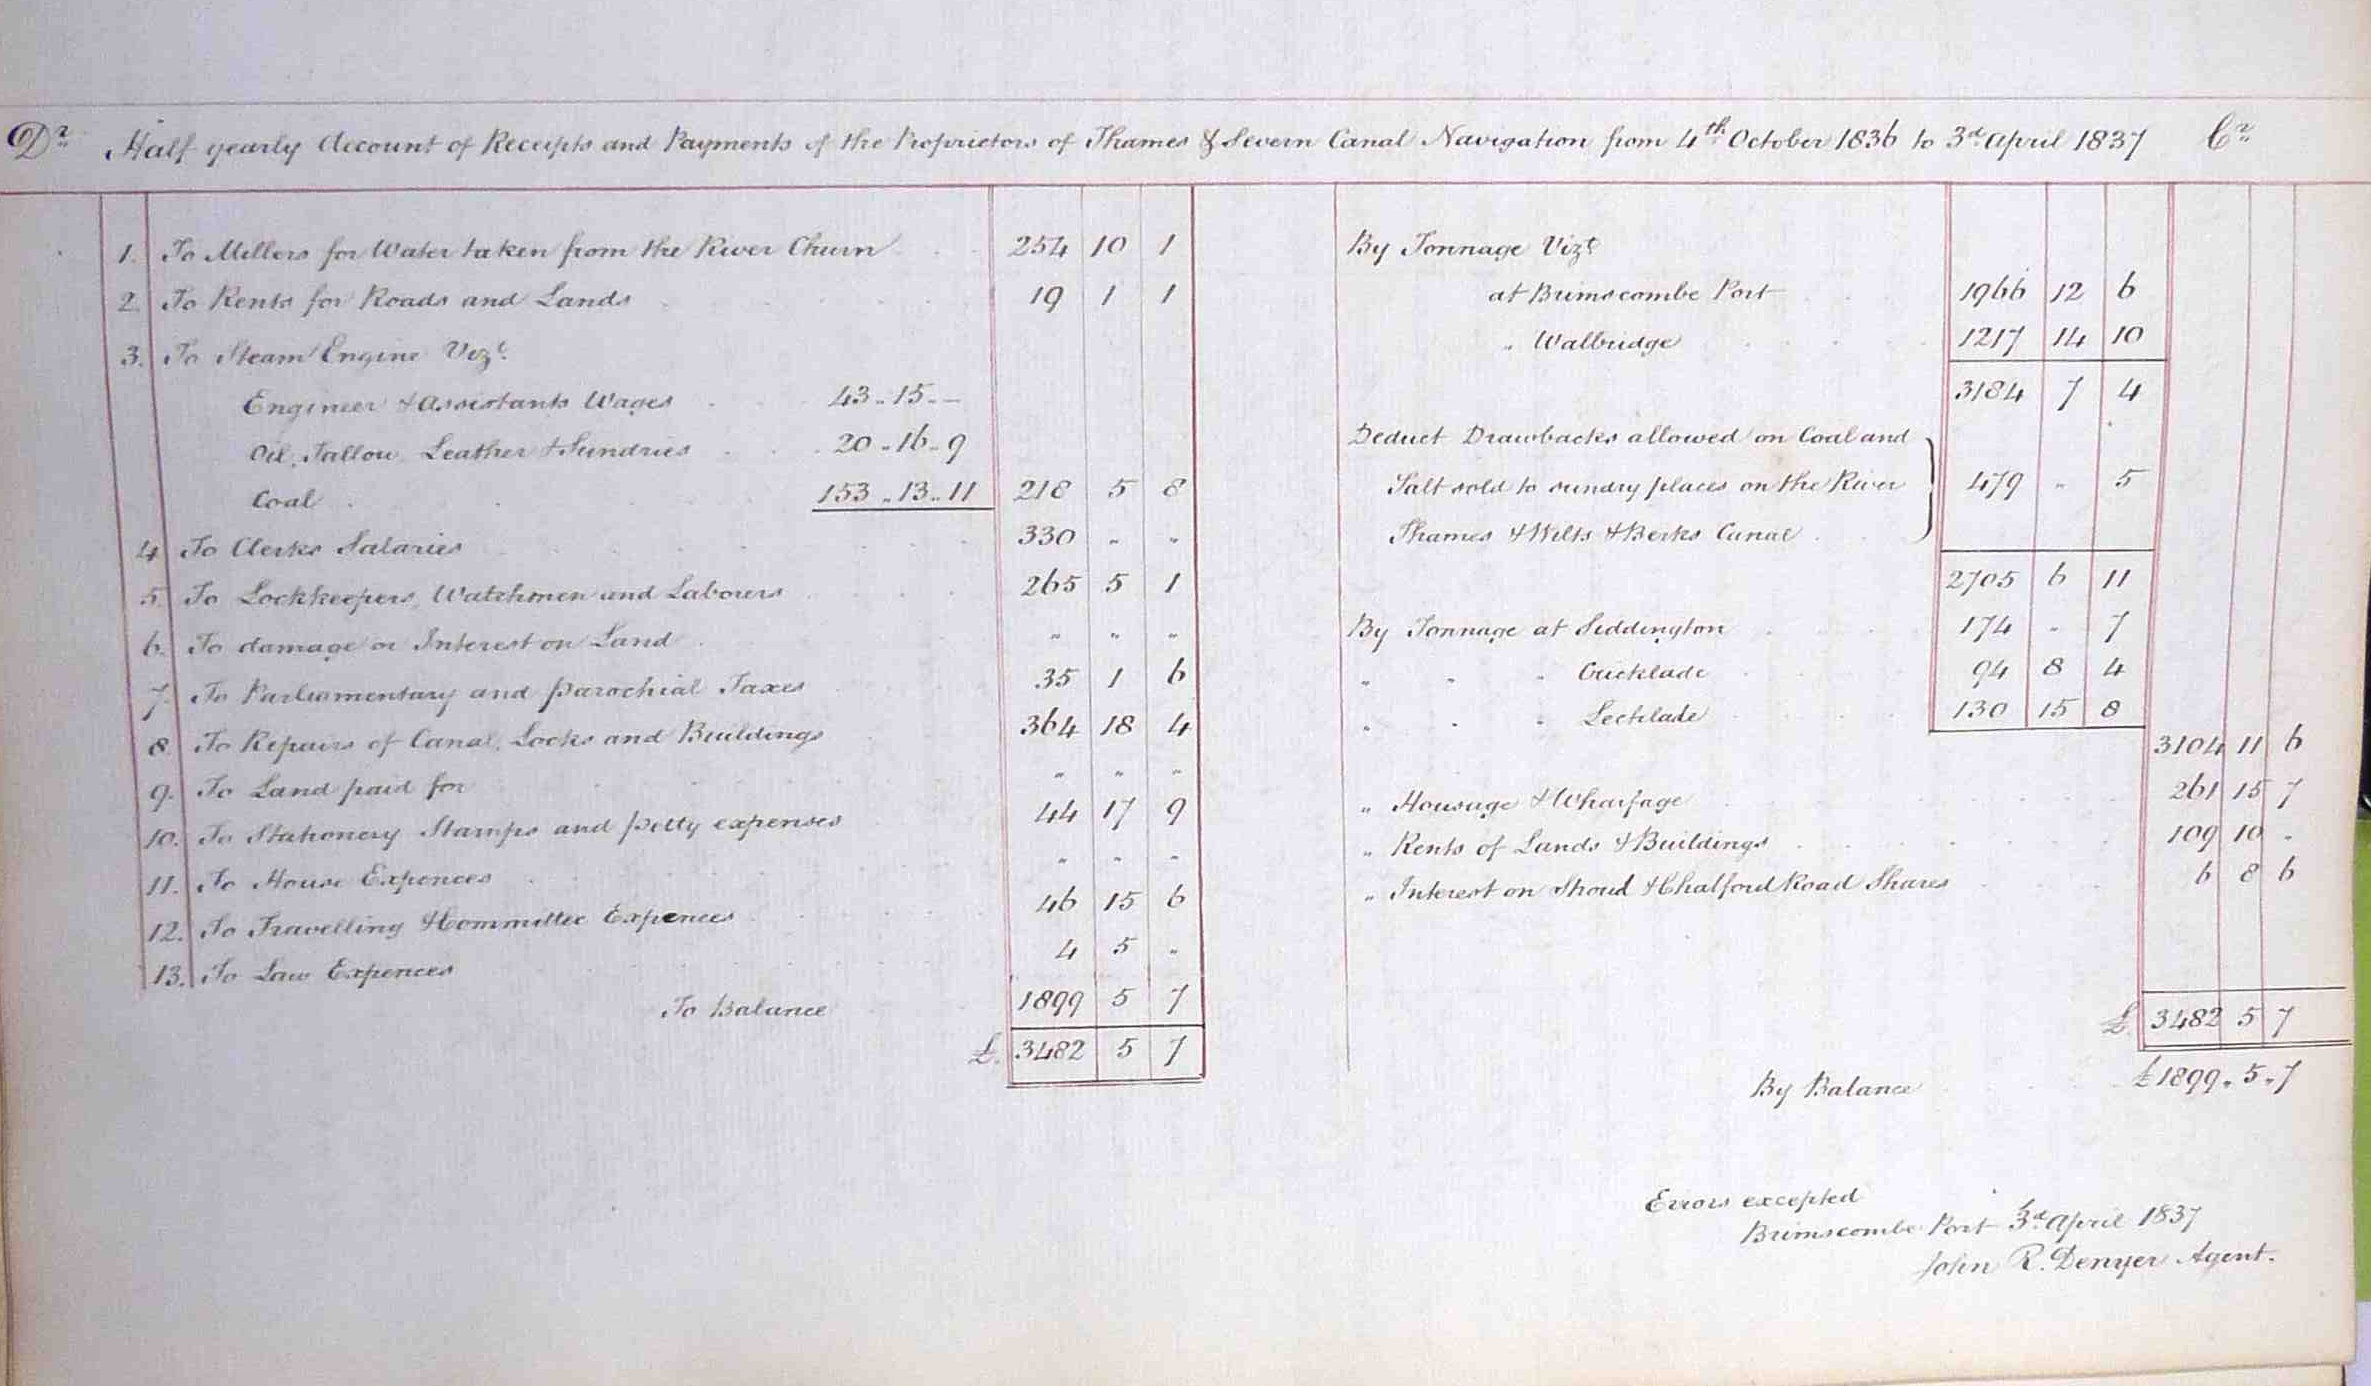 Dr Half yearly Account of Receipts and Payments of the Proprietors of Thames & Severn Canal Navigation from 4th October 1836 to 3d April 1837 Cr
1. To Millers for Water taken from the River Churn 254 10 1
2. To Rents for Roads and Lands 19 1 1
3. To Steam Engine Vizt
Engineer & Assistants Wages 43 .. 15 .. —
Oil, Tallow, Leather & Sundries 20 .. 16 .. 9
Coal 153 .. 13 .. 11 218 5 8
4 To Clerks Salaries 330 " "
5. To Lockkeepers, Watchmen and Laborers 265 5 1
6. To damage or Interest on Land " " "
7. To Parliamentary and parochial Taxes 35 1 6
8 To Repairs of Canal, Locks and Buildings 364 18 4
9. To Land paid for " " "
10. To Stationery Stamps and petty expenses 44 17 9
11. To House Expences " " "
12. To Travelling & Committee Expences 46 15 6
13. To Law Expences 4 5 "
To Balance 1899 5 7
£. 3482 5 7
By Tonnage Vizt
at Brimscombe Port 1966 12 6
" Walbridge 1217 14 10
3184 7 4
Deduct Drawbacks allowed on Coal and
Salt sold to sundry places on the River 479 " 5
Thames & Wilts & Berks Canal
2705 6 11
By Tonnage at Siddington 174 " 7
" " " Cricklade 94 8 4
" " " Lechlade 130 15 8
3104 11 6
" Housage & Wharfage 261 15 7
" Rents of Lands & Buildings 109 10 "
" Interest on Stroud & Chalford Road Shares 6 8 6
£. 3482 5 7
By Balance £1899 .. 5 .. 7
Errors excepted
Brimscombe Port 3d April 1837
John R. Denyer Agent.